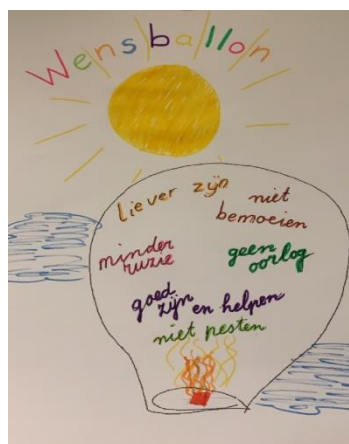 Wensballon
liever zijn
niet
bemoeien
minder
ruzie
geen
oorlog
goed
zijn en helpen
niet pesten